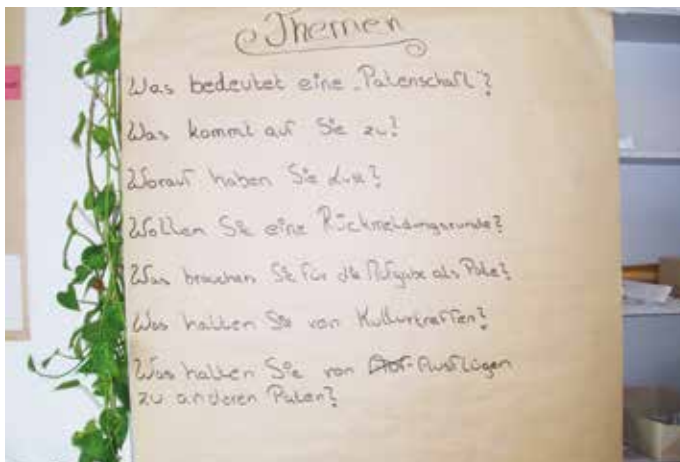 Themen
Was bedeutet eine „Patenschaft“?
Was kommt auf Sie zu?
Worauf haben Sie Lust?
Wollen Sie eine Rückmeldungsrunde?
Was brauchen Sie für die Aufgabe als Pate?
Was halten Sie von Kulturtreffen?
Was halten Sie von Ausflügen
zu anderen Paten?